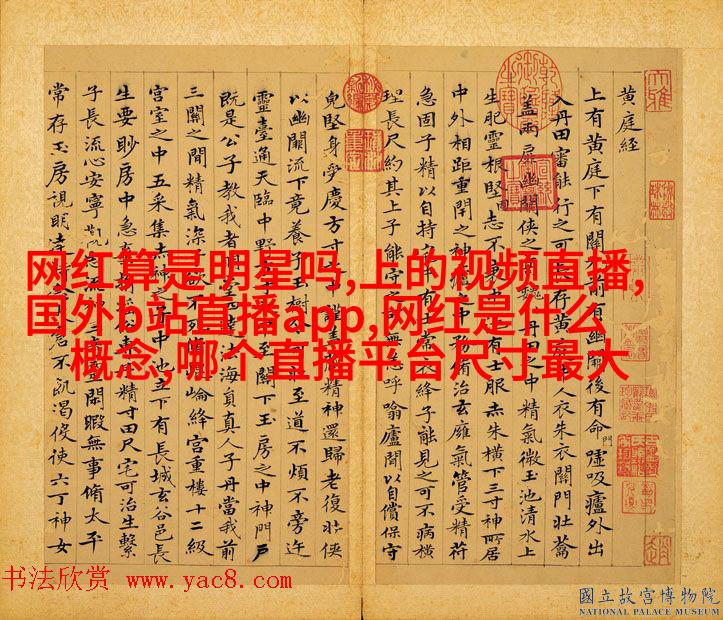 黄庭経
上有黄庭下有關前有幽後有命門噓吸廬外出
入丹田審能行之可存黄人衣朱衣關門壮蘥
蓋兩扉幽闕侠之巍丹田之中精氣微玉池清水上
生肥靈根堅志不衰中有士服赤朱横下三寸神所居
中外相距重閇之神之中務脩治玄廱氣管受精符
急固子精以自持宅有士常衣絳子能見之可不病横
理長尺約其上子能守之可無恙呼噏廬間以自償保守
皃堅身受慶方寸之謹盖藏精神還歸老復壮侠
以幽闕流下竟養子玉樹可至道不煩不旁迕
靈臺通天臨中野方寸之至關下玉房之中神門戶
既是公子教我者明堂四達法海貟真人子丹當我前
三關之間精氣深子欲不死崐崘絳宮重樓十二級
宮室之中五采集赤神之子中池立下有長城玄谷邑長
生要眇房中急子精寸田尺宅可治生繫
子長流心安寧志流三奇靈閒暇無事脩太平
常存玉房視明達時念不飢渴使六丁神女
网红算是明星吗,上的视频直播,
国外b站直播app,网红是什么
概念,哪个直播平台尺寸最大
书法欣赏 www.yac8.com
國立故宮博物院
NATIONAL PALACE MUSEUM